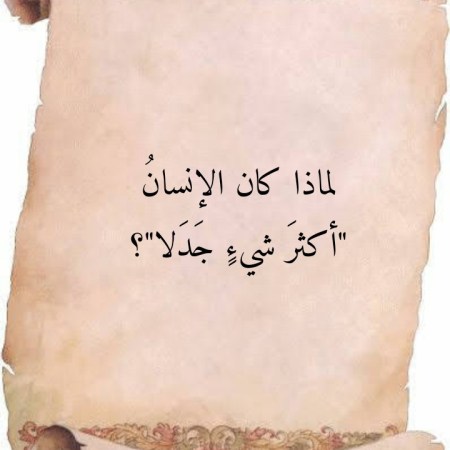 لماذا كان الإنسانُ
"أكثرَ شيءٍ جَدَلا"؟